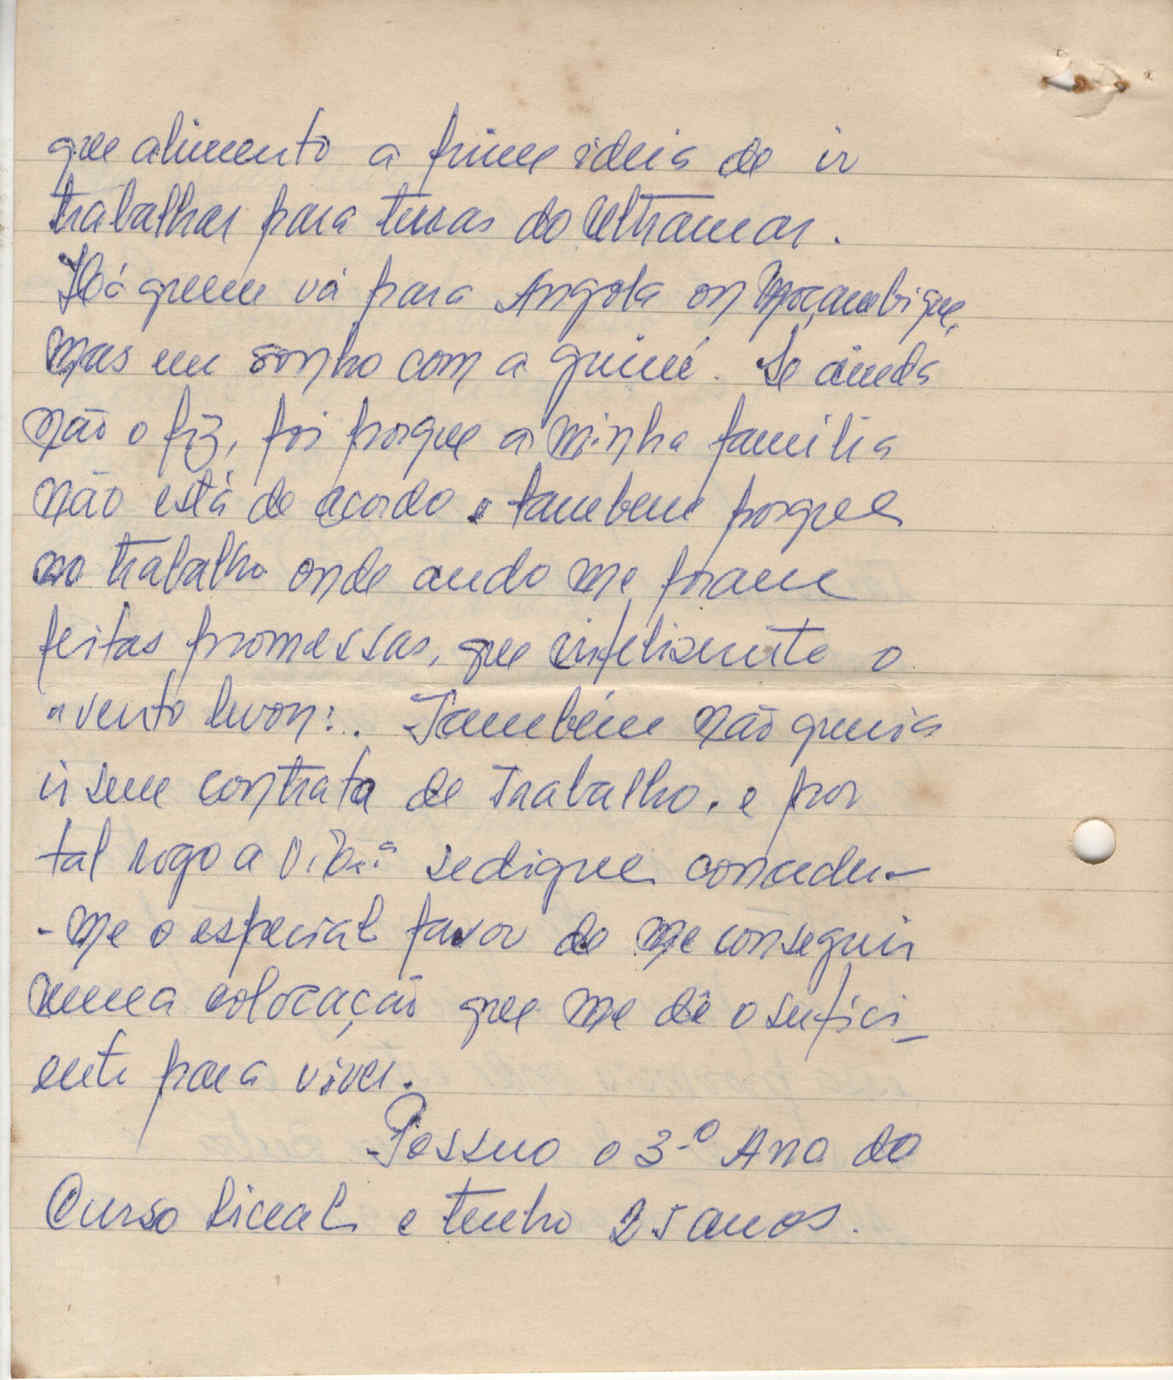 que alimento a firme ideia de ir
trabalhar para terras do Ultramar.
Há quem vá para Angola ou Moçambique,
mas eu sonho com a Guiné. Se ainda
não o fiz, foi porque a minha família
não está de acordo e tambem porque
no trabalho onde ando me foram
feitas promessas, que infelismente o
"vento levou". Também não queria
ir sem contrata de trabalho, e por
tal rogo a V. Ex.ª se digne conceder-
-me o especial favor de me conseguir
uma colocação que me dê o sufici-
ente para viver.
Possuo o 3.º Ano do
Curso Liceal e tenho 25 anos.